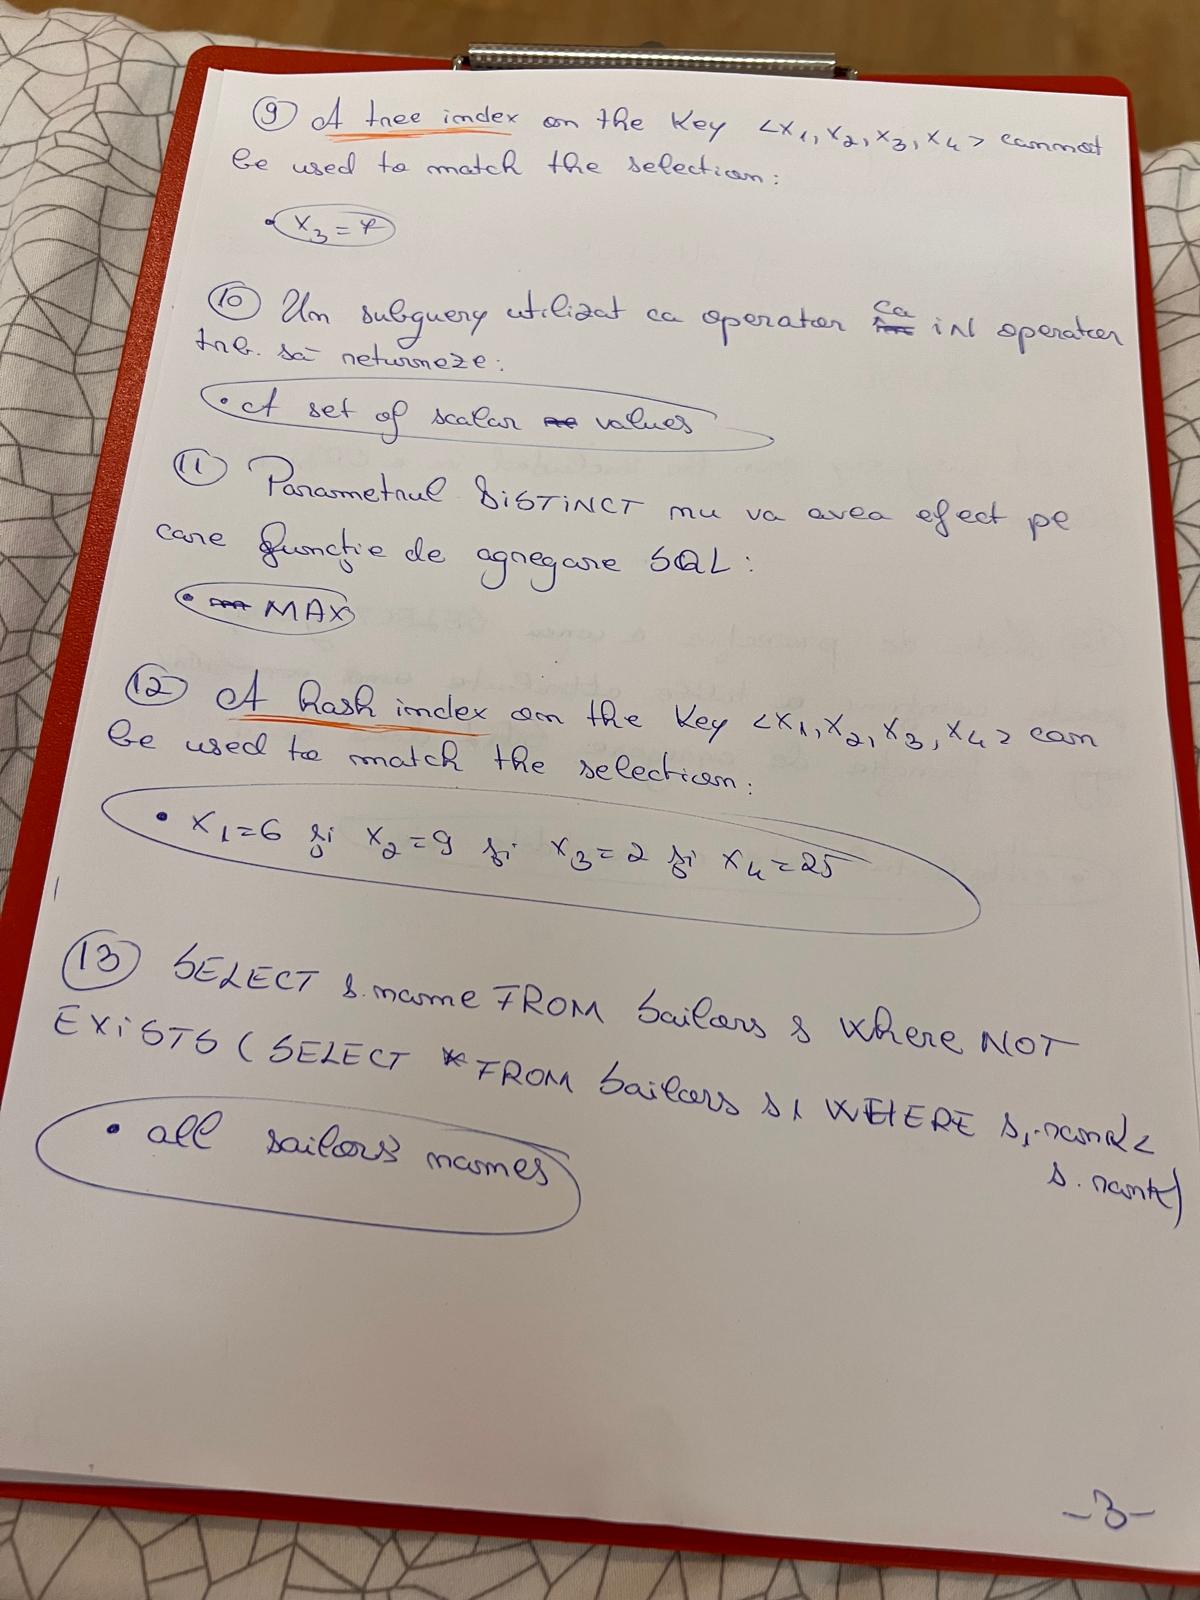 9 A tree index on the key <x1, x2, x3, x4> cannot
be used to match the selection:
• x3 = 7
10 Un subquery utilizat ca operator ca iN operator
trb. să returneze:
• A set of scalar values
11 Parametrul DiSTiNCT nu va avea efect pe
care funcție de agregare SQL:
• MAX
12 A hash index on the key <x1, x2, x3, x4> can
be used to match the selection:
• x1=6 și x2=9 și x3=2 și x4=25
13 SELECT s.name FROM Sailors s where NOT
EXiSTS (SELECT * FROM Sailors s1 WHERE s1.rank<
s.rank)
• all sailors names
-3-